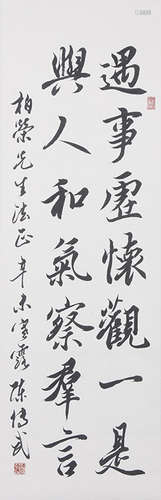 遇事虛懷觀一是
與人和氣察羣言
柏榮先生法正 辛未寒露 陳傅武